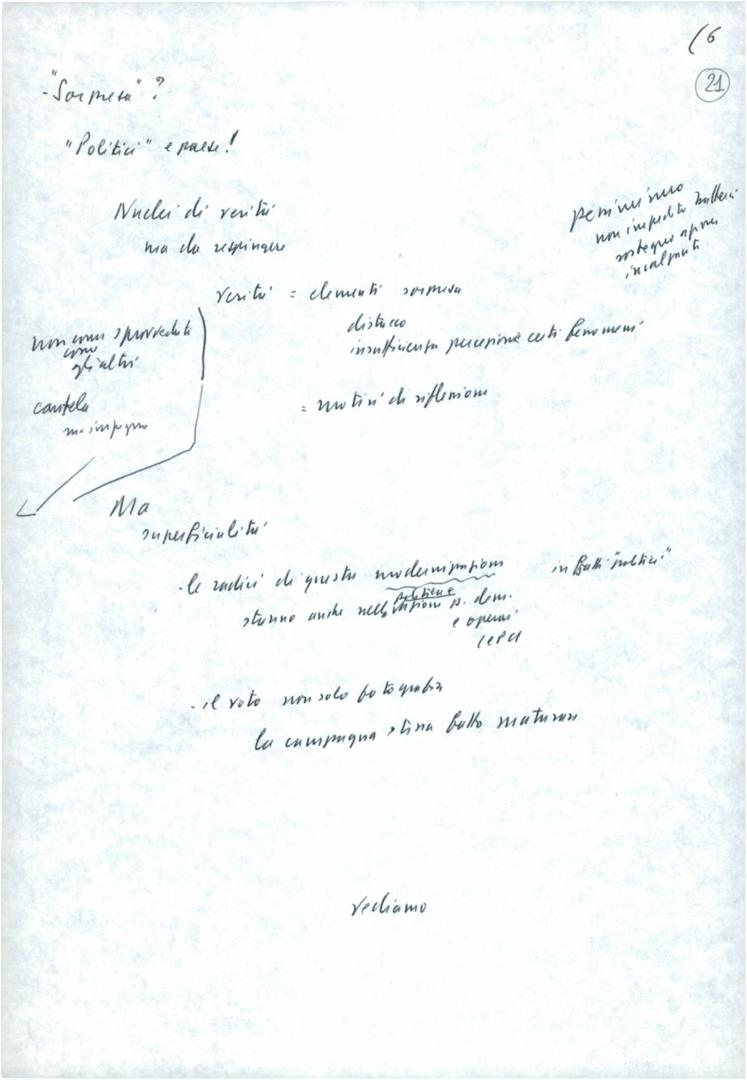 (6
21
- "Sorpresa" ?
"Politici" e paese!
Nuclei di verità
ma da respingere
pessimismo
non impedito battersi
sostegno a
verità = elementi sorpresa
distacco
insufficienza percezione certi fenomeni
= motivi di riflessione
non come sprovveduti
come
gli altri
cautela
ma impegno
Ma
superficialità
- le radici di questa modernizzazione in fatti "politici"
politiche
stanno anche nell'azione s. dem.
e operai
(e PCI
- il voto non solo fotografia
la campagna stessa fatto maturare
vediamo